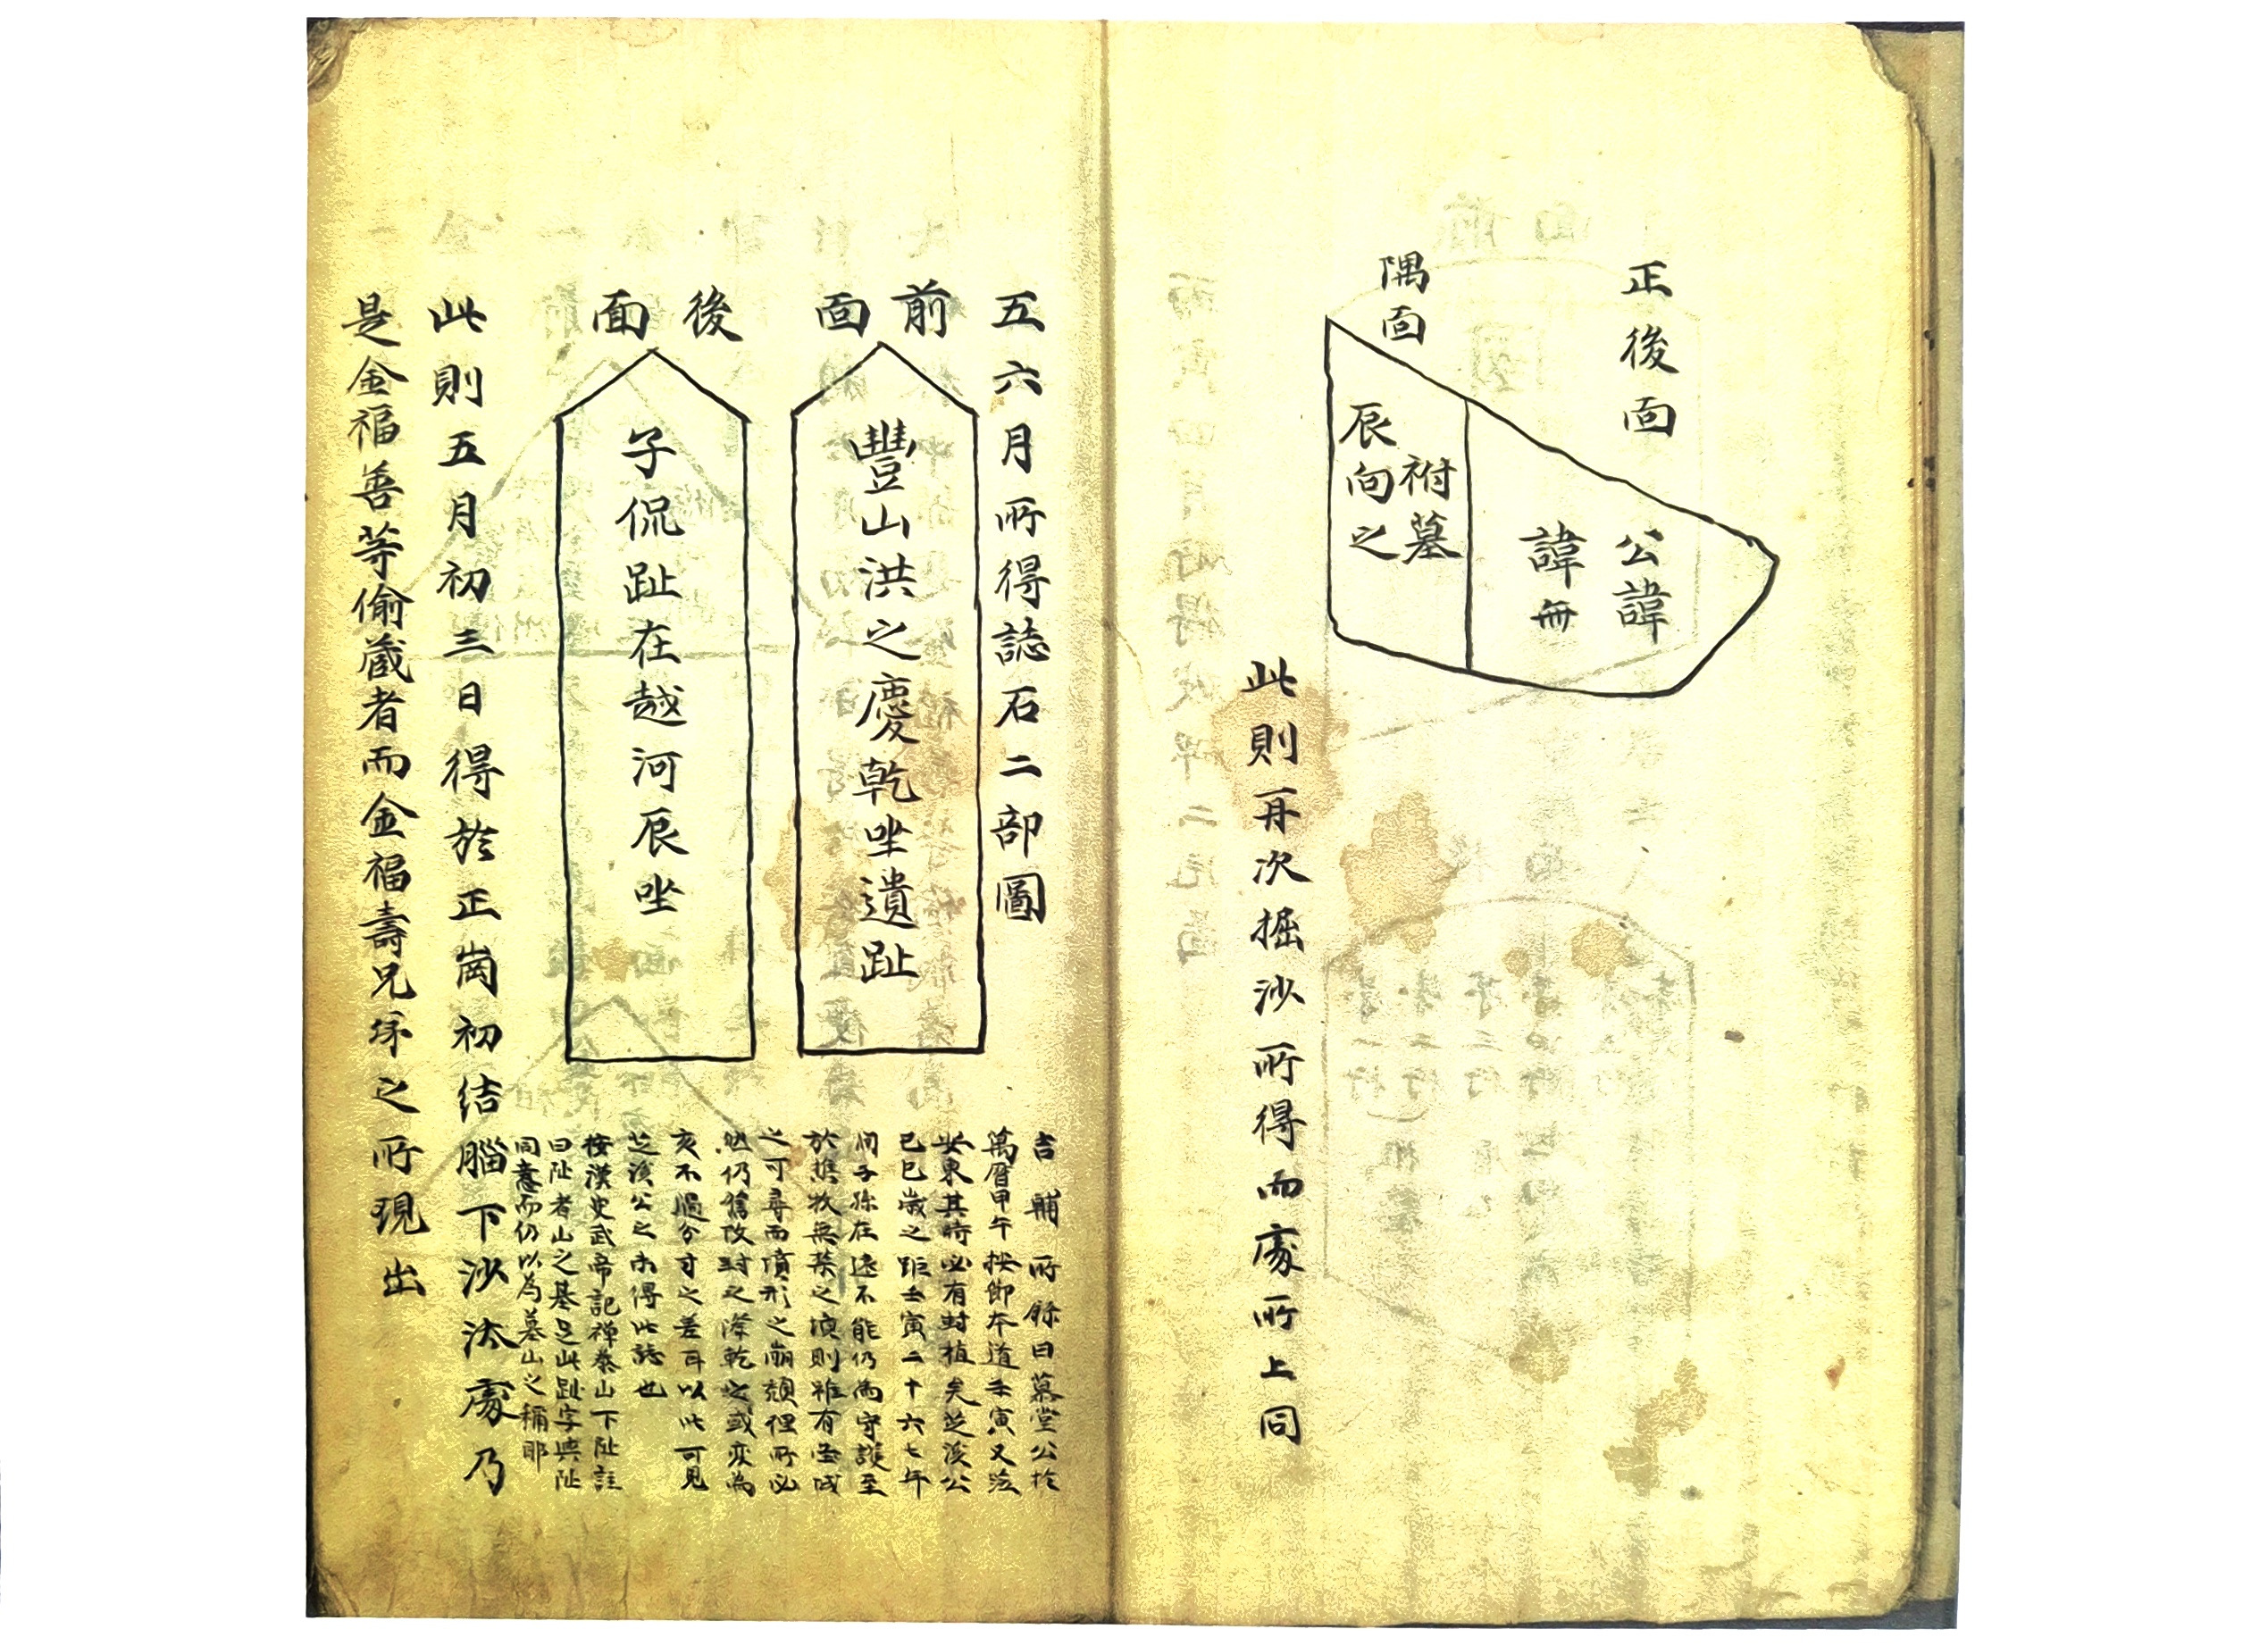 正後面
隅面
公諱
諱無
祔墓
辰向之
此則再次掘沙所得而處所上同
五六月所得誌石二部圖
前面
豐山洪之慶乾坐遺趾
後面
子侃趾在越河辰坐
吉輔所錄曰慕堂公於
萬曆甲午按節本道壬寅又莅
安東其時必有封植矣芝溪公
己巳歲之距壬寅二十六七年
間子孫在遠不能仍為守護至
於樵牧無禁之境則雖有瑩域
之可尋而墳形之崩頹俚所必
然仍舊改封之際乾之或変為
亥不過分寸之差耳以此可見
芝溪公之未得此誌也
按漢史武帝記禅泰山下阯註
曰阯者山之基足此趾字與阯
同意而仍以為墓山之稱耶
此則五月初三日得於正崗初結腦下沙汰處乃
是金福善等偷藏者而金福壽兄弟之所現出